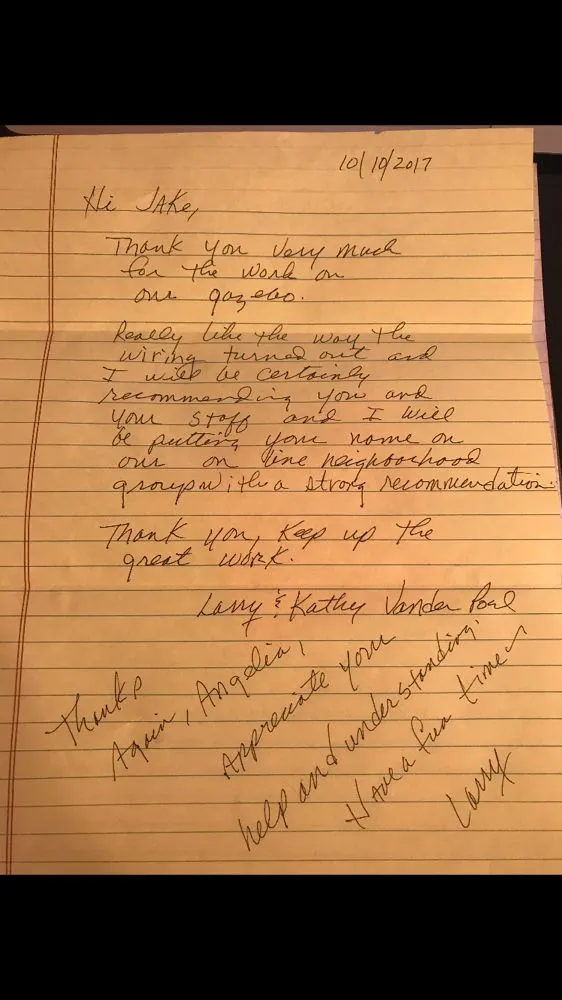 10/10/2017
Hi JAKe,
Thank you very much
for the work on
our gazebo.
Really like the way the
wiring turned out and
I will be certainly
recommending you and
your staff and I will
be putting your name on
our on line neighborhood
group with a strong recommendation.
Thank you, Keep up the
great work.
Larry & Kathy Vander
Thanks
Again, Angelia,
Appreciate your
help and understanding.
Have a fun time
Larry